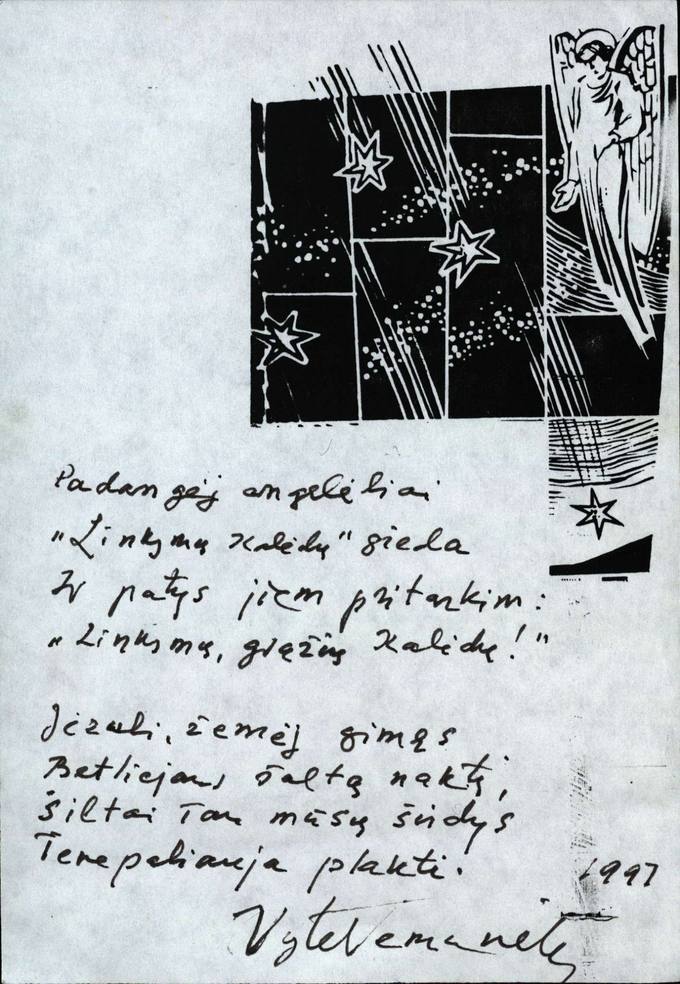 Padangėj angelėliai
„Linksmų Kalėdų" gieda
Ir patys jiem pritarkim:
„Linksmų, gražių Kalėdų!"
Jėzuli, žemėj gimęs
Betliejaus šaltą naktį,
Šiltai Tau mūsų širdys
Tenepaliauja plakti.
1997
Vytė Nemunėlis